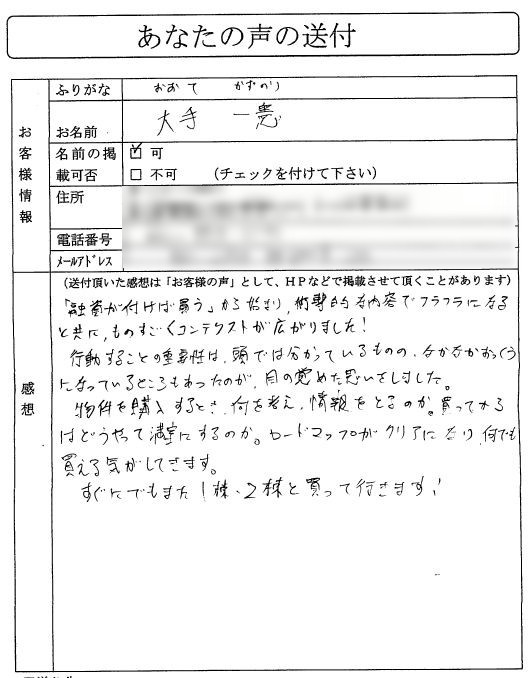 あなたの声の送付
お客様情報
ふりがな おおて かずのり
お名前 大手 一憲
名前の掲載可否 ☑ 可
□ 不可 （チェックを付けて下さい）
住所
電話番号
メールアドレス
感想
（送付頂いた感想は「お客様の声」として、ＨＰなどで掲載させて頂くことがあります）
「融資が付けば買う」から始まり、衝撃的な内容でフラフラになる
と共に、ものすごくコンテクストが広がりました！
行動することの重要性は、頭では分かっているものの、なかなかおっくう
になっているところもあったのが、目の覚めた思いをしました。
物件を購入するとき、何を考え、情報をとるのか。買ってから
はどうやって満室にするのか。ロードマップがクリアになり、何でも
買える気がしてきます。
すぐにでもまた1棟、2棟と買って行きます！